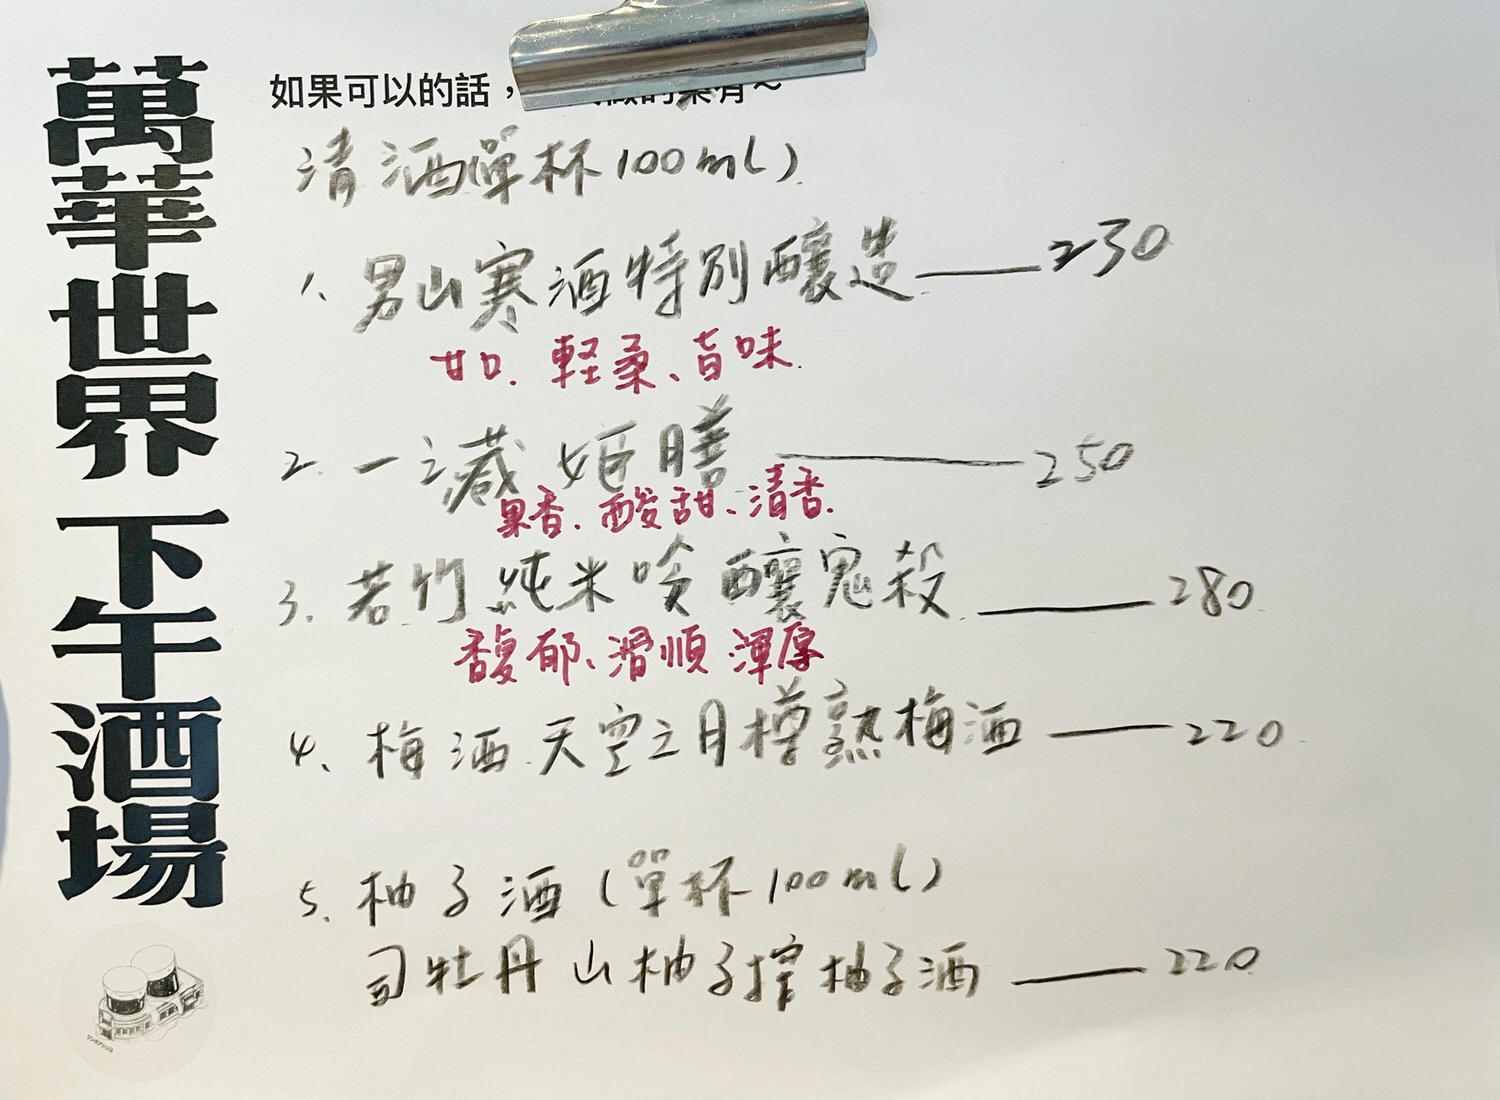 萬華世界 下午酒場
如果可以的話，
清酒單杯100ml)
1、男山寒酒特別釀造——230
甘口、軽柔、旨味
2. 一之蔵 姫膳——250
果香、酸甜、清香
3. 若竹 純米吟釀鬼殺——280
馥郁、滑順 渾厚
4、梅酒 天空之月樽熟梅酒——220
5、柚子酒(單杯100ml)
司牡丹 山柚子搾柚子酒——220